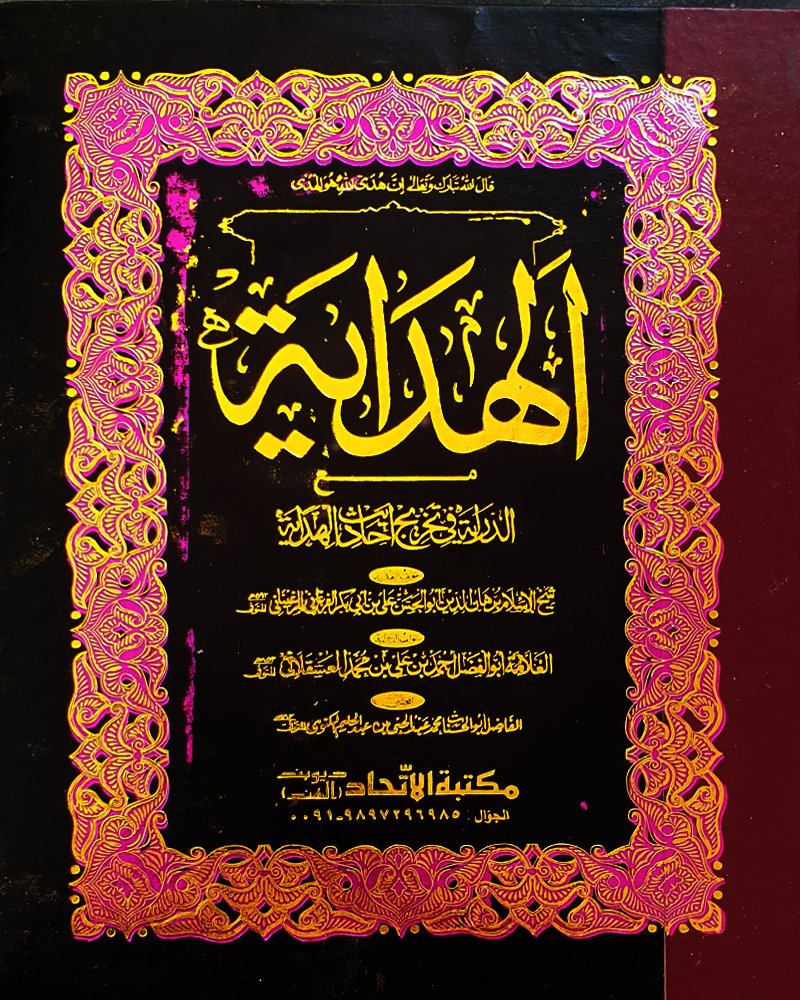 قال الله تبارك وتعالى إن هُدَى اللهِ هُوَ الهُدَى
اَلهِدَايَة
مع
الدراية في تخريج أحاديث الهداية
مؤلف الهداية
شيخ الإسلام برهان الدين أبو الحسن علي بن أبي بكر الفرغاني المرغيناني المتوفى
العلامة أبو الفضل أحمد بن علي بن محمد العسقلاني المتوفى
الفاضل أبو الحسنات محمد عبد الحي بن عبد الحليم اللكنوي المتوفى
مكتبة الاتّحاد ديوبند (الهند)
الجوّال : ٠٠٩١-٩٨٩٧٢٩٦٩٨٥